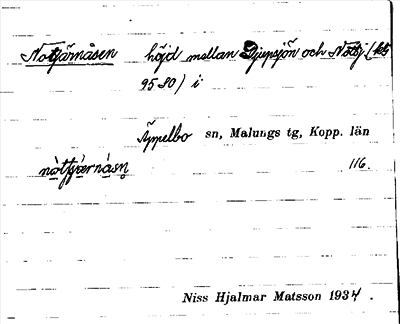 Notjärnåsen höjd mellan Djupsjön och Nottj. (
95 80) i
Äppelbo sn, Malungs tg, Kopp. län
nòtʃæ̀rnåsn̥ 116.
Niss Hjalmar Matsson 1934.